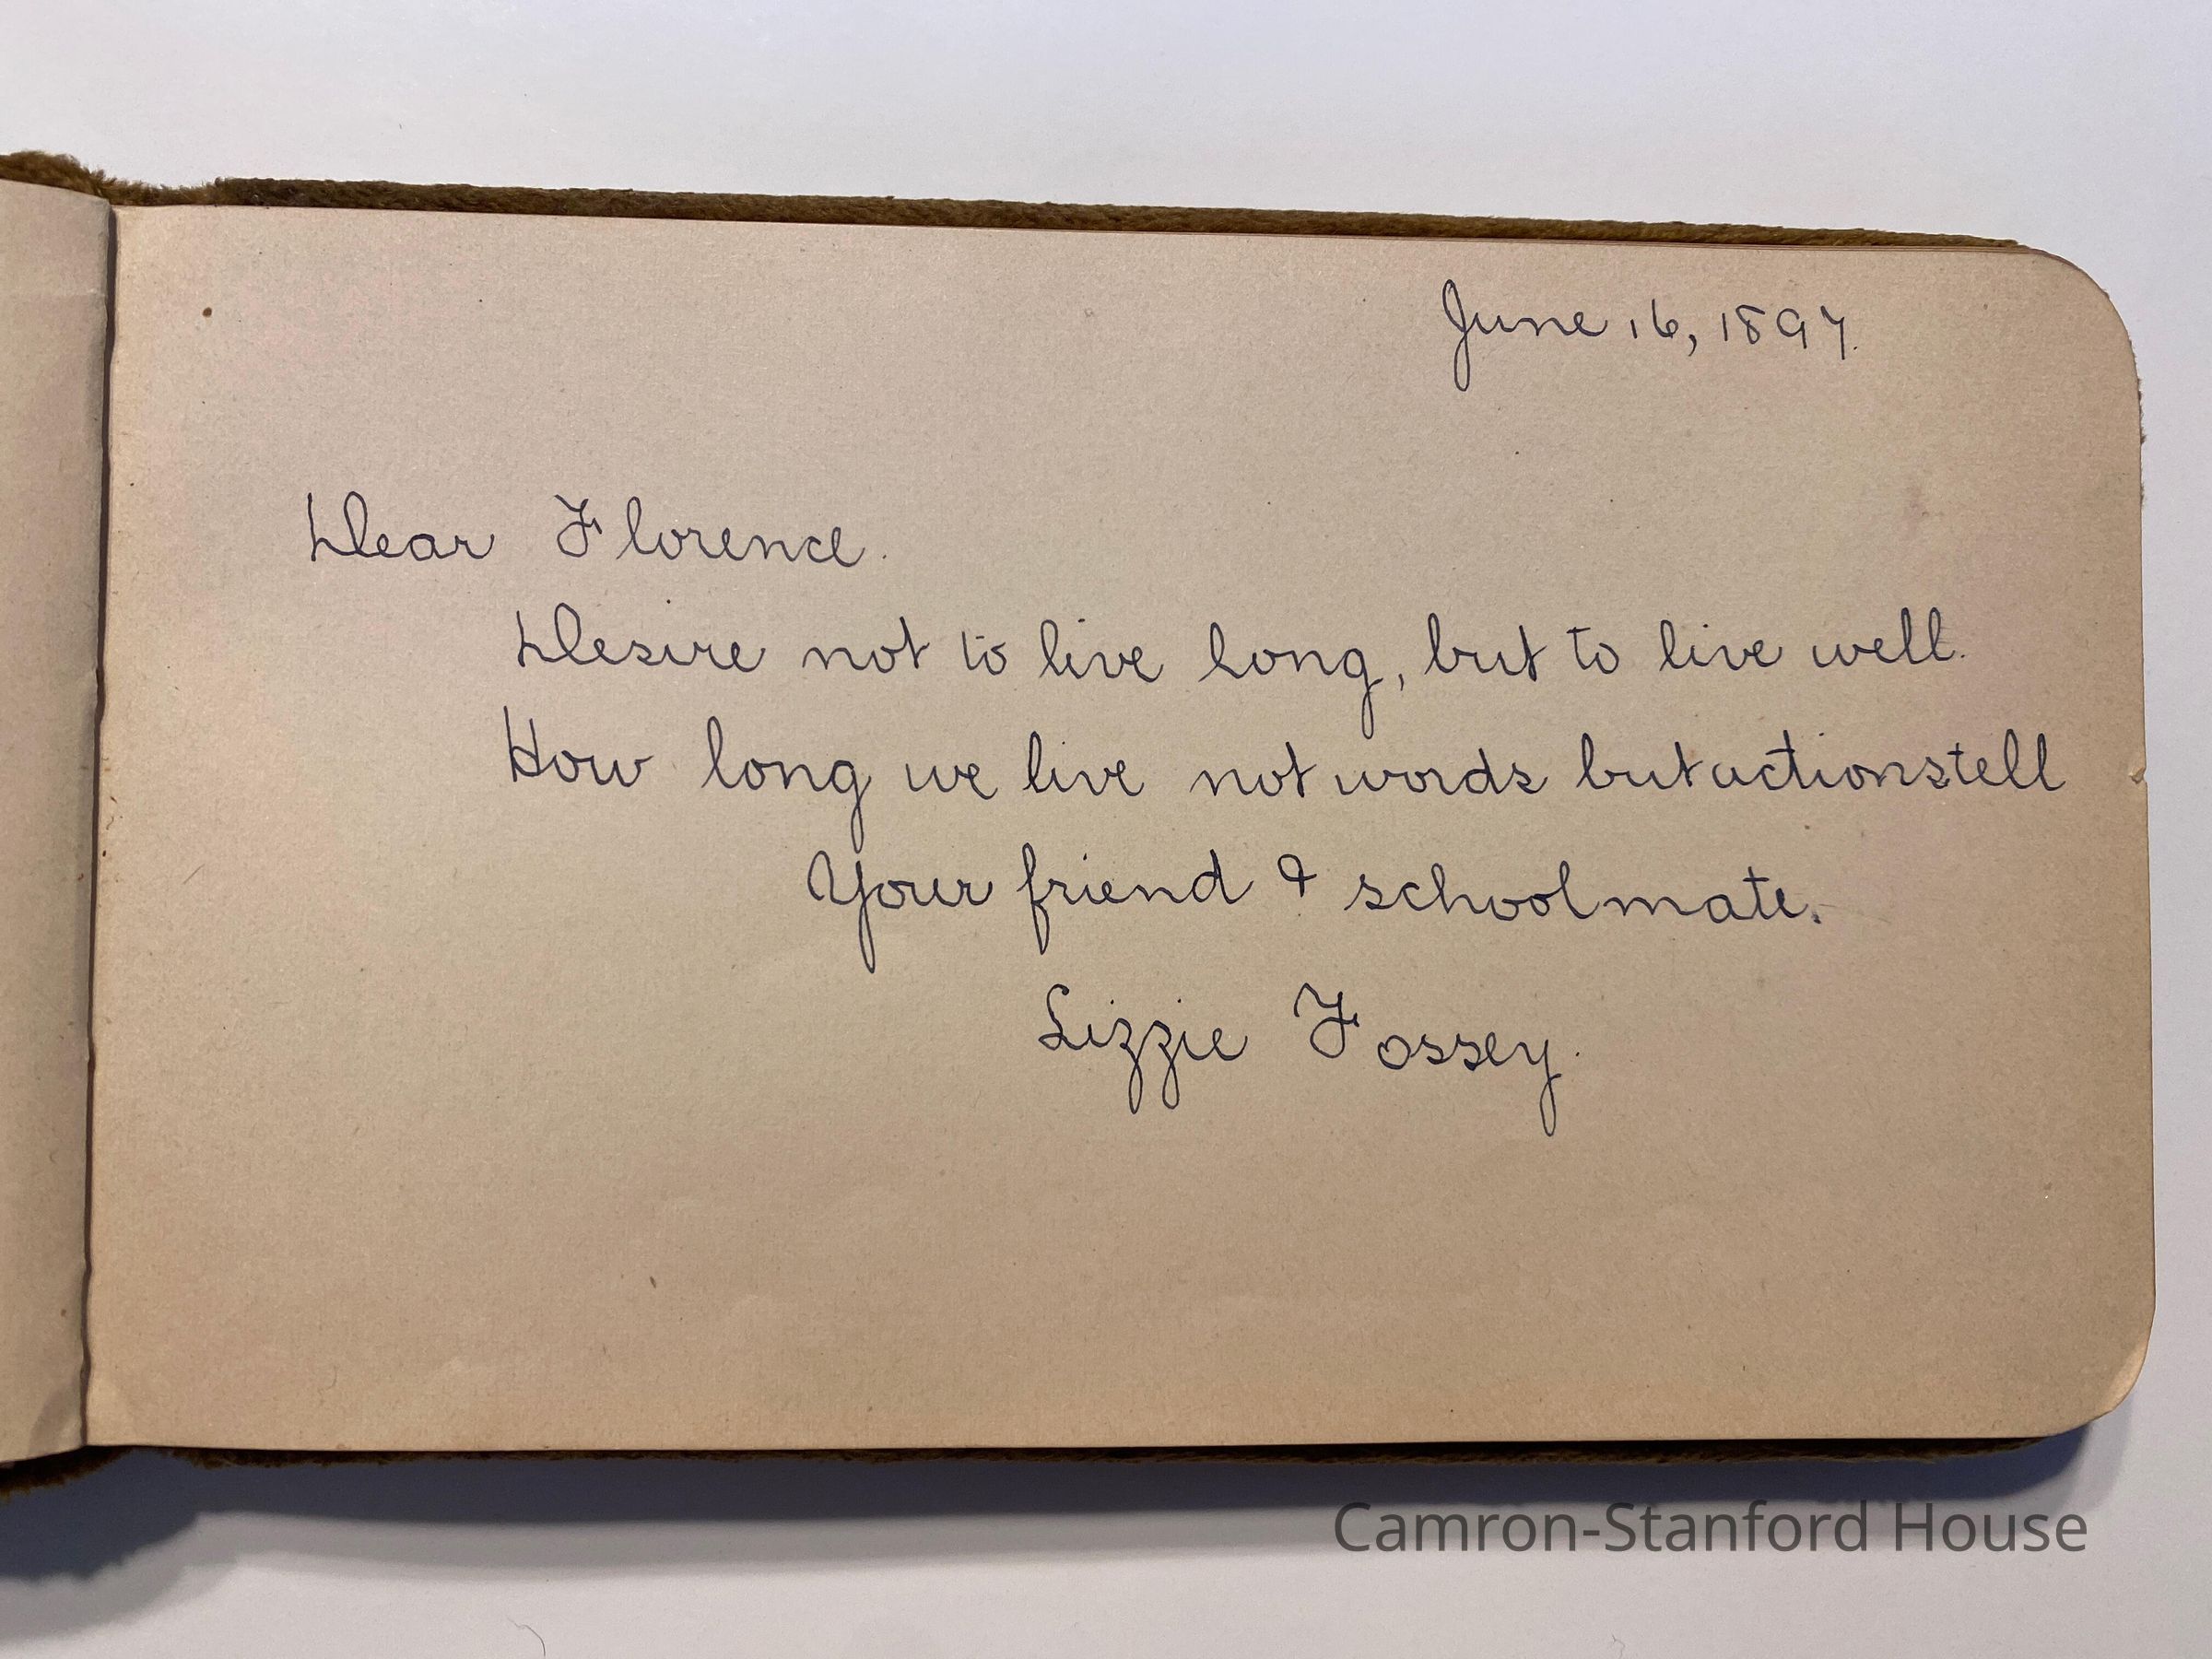 June 16, 1897.
Dear Florence.
Desire not to live long, but to live well.
How long we live not words but actions tell
Your friend & schoolmate.
Lizzie Fossey.
Camron-Stanford House